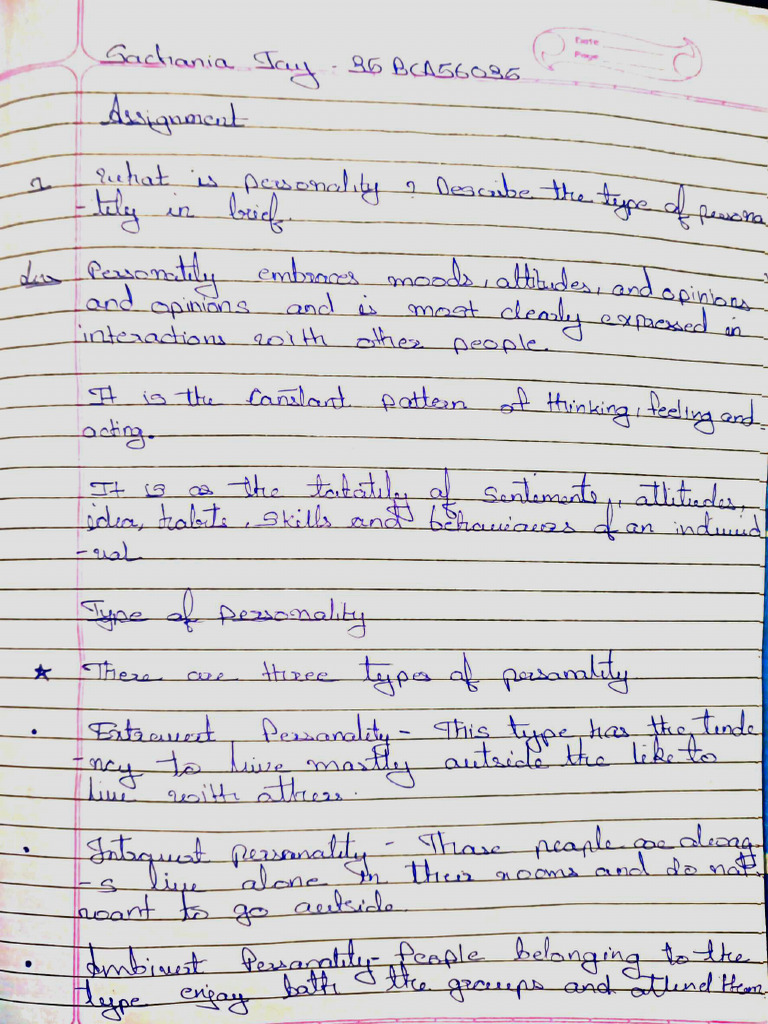 Sachania Jay - 25BCA56025
Date
Page
Assignment
1 What is personality ? Describe the type of persona
-tily in brief.
Ans Personatily embraces moods, attitudes, and opinions
and opinions and is most clearly expressed in
interactions with other people.
It is the Constant pattern of thinking, feeling and
acting.
It is as the totatily of sentiments, attitudes,
idea, habits, skills and behaviours of an individ
-ual
Type of personality
★ There are three types of personality
• Extrovert Personality - This type has the tende
-ncy to live mostly outside the like to
live with others.
• personality - Those people are alwag
-s live alone in their rooms and do not
want to go outside.
• Ambivert Personality - People belonging to the
type enjoy both the groups and attend them